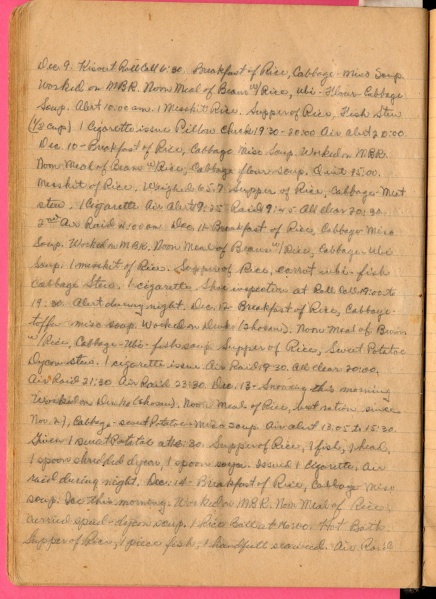 Dec 9. Roll Call 6:30. Breakfast of Rice, Cabbage-Miso Soup.
Worked on MBR. Noon Meal of Beans w/ Rice, Ubi-Flour-Cabbage
Soup. Alert 10:00 am. 1 Meskit Rice. Supper of Rice, Fish Stew
(1/2 cup) 1 Cigarette issue Pillow Check 19:30-20:00 Air alert 20:00.
Dec. 10 - Breakfast of Rice, Cabbage Miso Soup. Worked on MBR.
Noon Meal of Beans w/ Rice, Cabbage flour soup. Quit 15:00.
Meskit of Rice. Weighed 65.9. Supper of Rice, Cabbage-
stew. 1 Cigarette Air Alert Raid All clear 20:30.
2nd Air Raid Dec. 11- Breakfast of Rice, Cabbage-Miso
Soup. Worked on MBR. Noon Meal of Beans w/ Rice, Cabbage-Ubi
Soup. 1 meskit of Rice. Supper of Rice, carrot-ubi-fish
Cabbage Stew. 1 cigarette. Shoe inspection at Roll Call. 19:00 to
19:30. Alert during night. Dec. 12- Breakfast of Rice, Cabbage-
miso soup. Worked on (2 hours). Noon Meal of Beans
w/ Rice, Cabbage-Ubi-fish soup. Supper of Rice, Sweet Potatoe
stew. 1 cigarette issue Air Raid 19:30. All clear 20:00.
Air Raid 21:30 Air Raid 23:30 Dec. 13- Snowing this morning
Worked on Noon Meal of Rice, ration since
Nov. Cabbage-sweet Potatoe-Miso soup. Air alert 13:05 to 15:30.
Given 1 sweet Potatoe at Supper of Rice, 1 fish, 1 head,
1 spoon shredded 1 spoon soya. Issued 1 Cigarette. Air
raid during night. Dec. 14- Breakfast of Rice, Cabbage Miso
soup. Ice this morning. Worked on MBR. Noon Meal of Rice,
soup. 1 Rice Ball at Hot Bath
Supper of Rice, 1 piece fish, 1 handfull seaweed. Air Raid